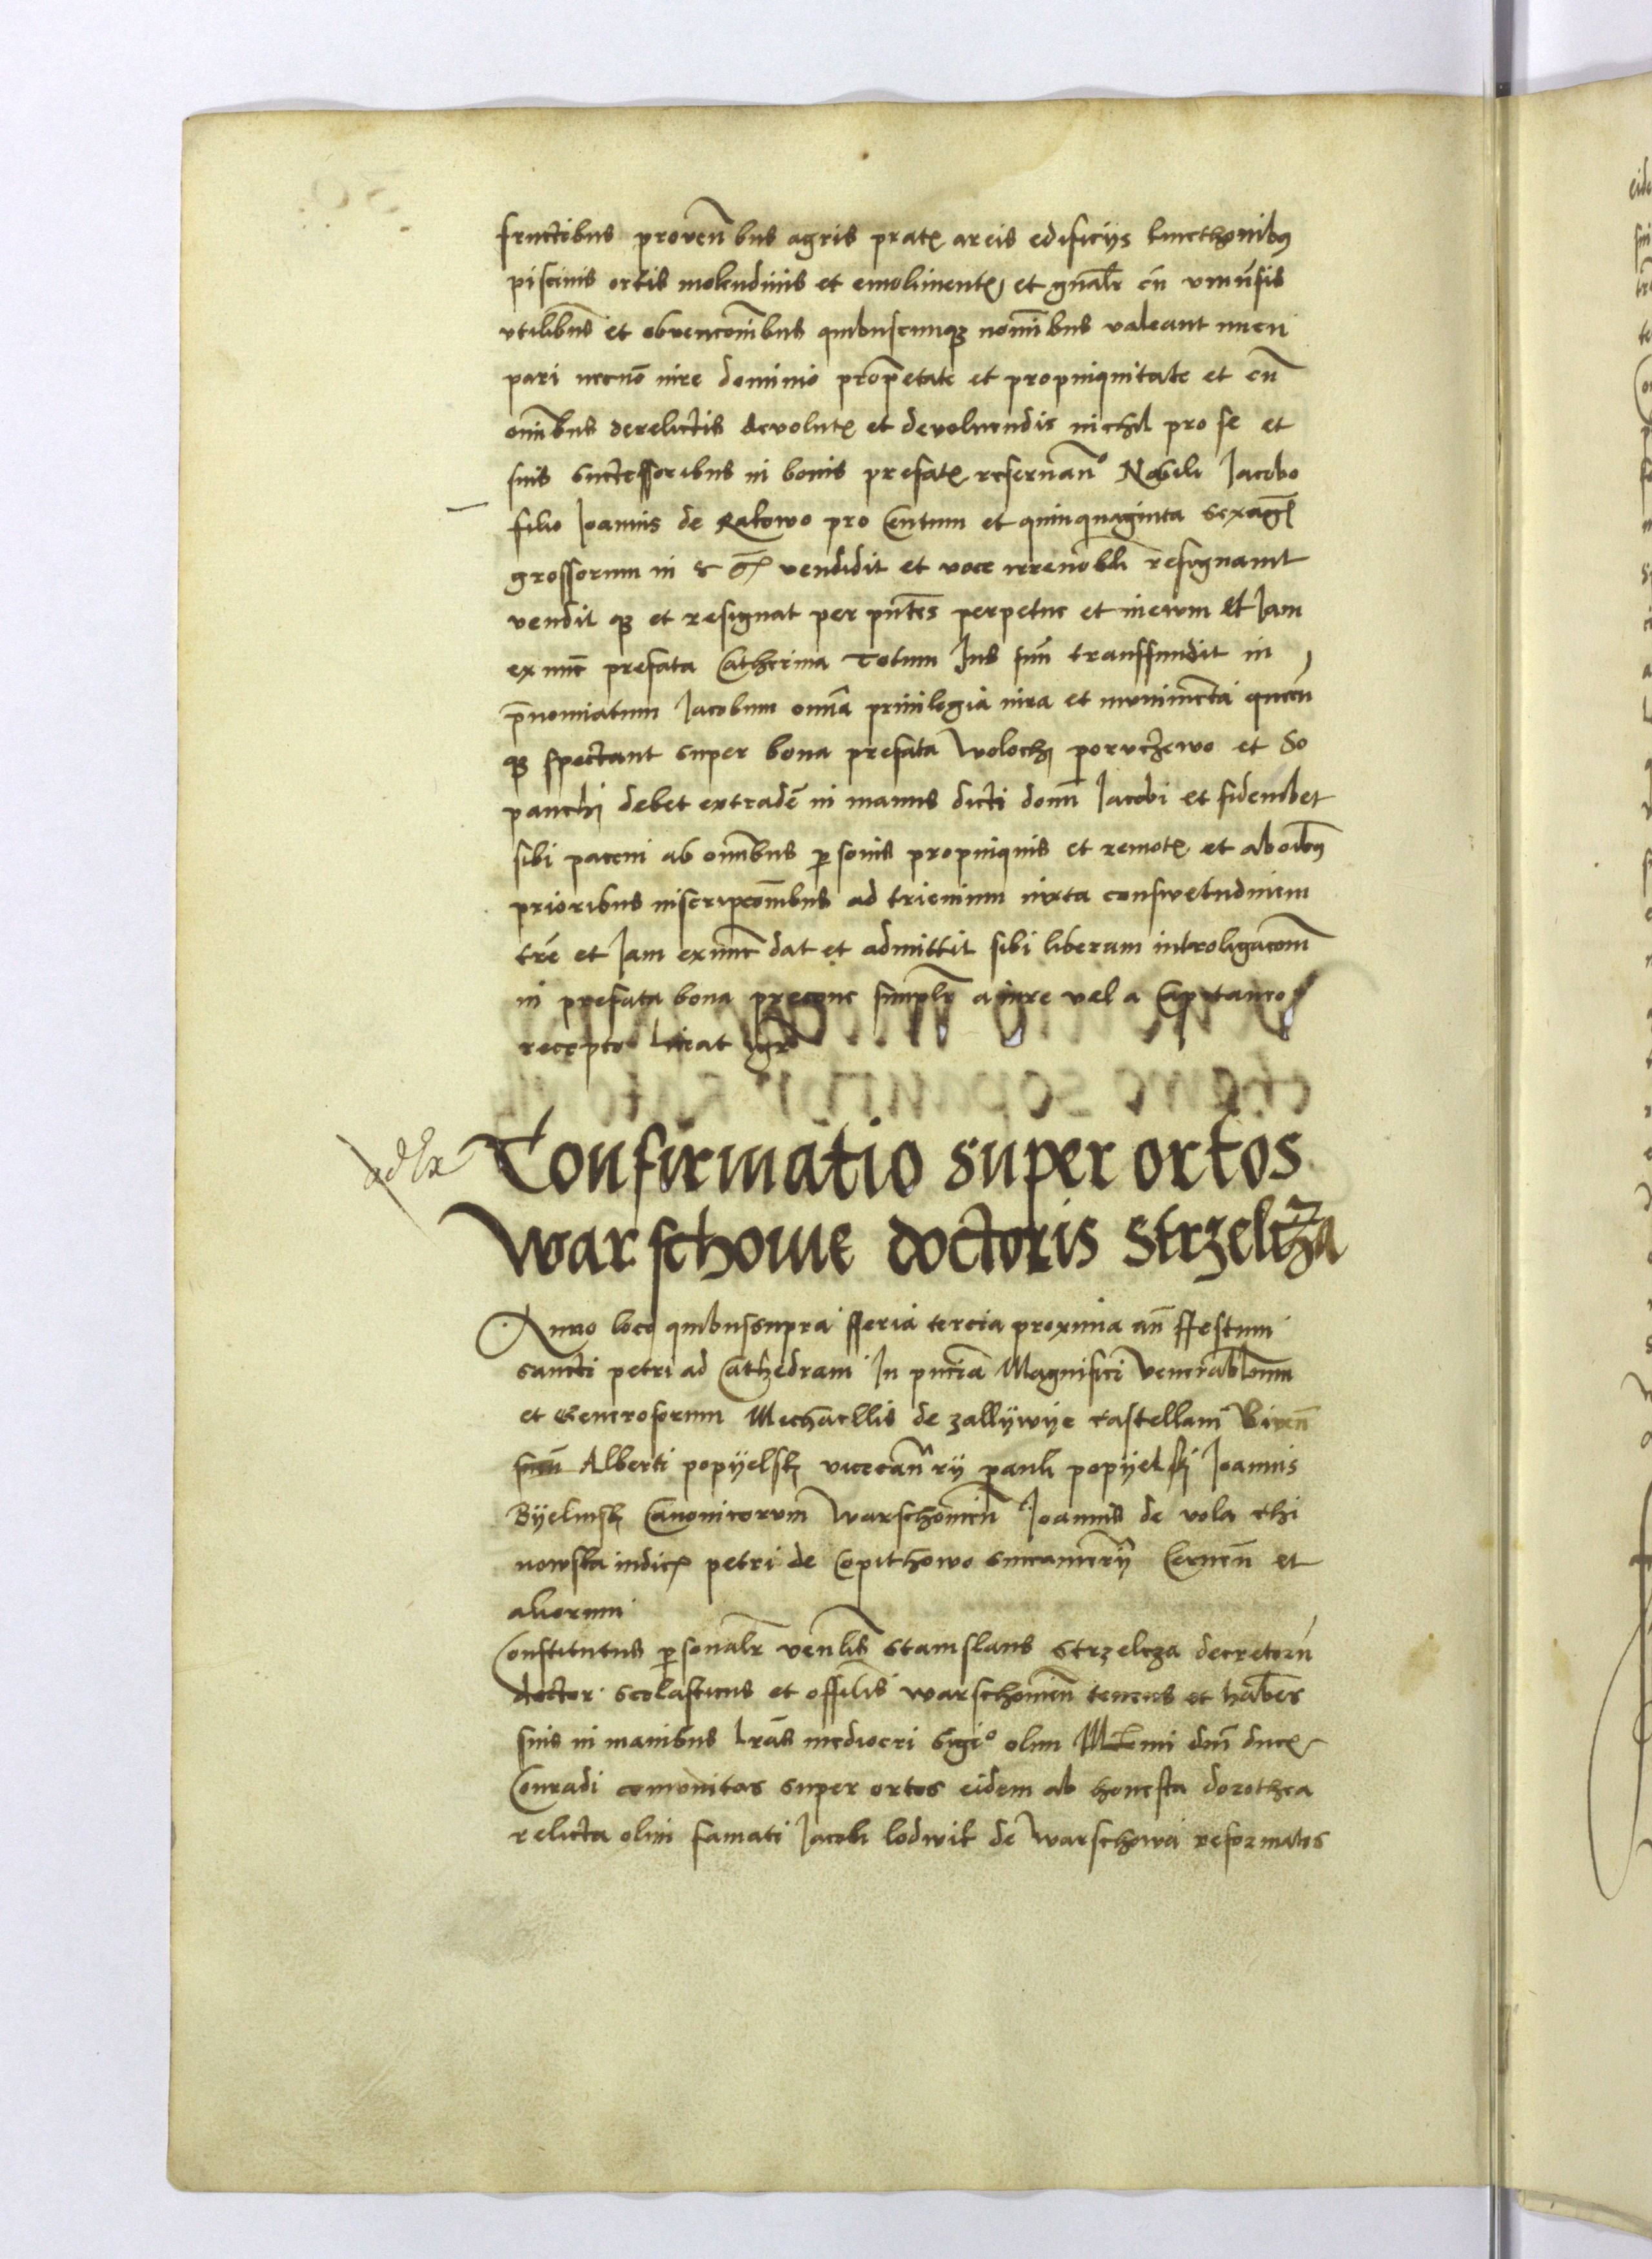 fructibus provenbus agris prat areis edificijs kmethonibus
piscinis ortis molendinis et emoliment et gnalr cu univsis
vtilibus et obvenconibus quibuscunq nominibus valeant nucu
pari necno iure dominio proprietate et propinquitate et cu
omnibus derelictis devolut et devoluendis nichil pro se et
suis successoribus in bonis prefat reservando Nobili Jacobo
filio Joannis de Rakowo pro Centum et quinquaginta sexag
grossorum in vendidit et voce irrevobili resignavit
vendit q et resignat per pntes perpetue et in evum Et Jam
ex nunc prefata Catherina Totum Jus suu transfundit in
prenomiatum Jacobum omnia privilegia iura et munimenta quecu
q spectant super bona prefata Woloch porvczewo et So
panchi debet extrade in manus dicti domi Jacobi et fideiubet
sibi paceni ab omnibus personis propinquis et remot et ab oibus
prioribus inscripcoibus ad trienium iuxta consvetudinem
tre et Jam exnunc dat et admittit sibi liberum introligacom
in prefata bona precone simplr a iure vel a Capitaneo
recepto
ad Ex
Confirmatio super ortos
warschovie doctoris Strzelcza
Anno loco quibus supra fferia tercia proxima an ffestum
sancti petri ad Cathedram In pncia Magnifici Venerabilium
et Generosorum Michaellis de zallijwije castellani Vixn
Alberti popijelsk vicecanrij pauli popijelskj Joannis
Bijelinsk Canonicorum Warschovien Joannis de vola chi
nowska iudic petri de Copithowo succamerij Cernen et
aliorum
Constitutus personalr venlis Stanislaus Strzelcza decretoru
doctor scolasticus et offilis warschovien tenens et habens
suis in manibus lras mediocri Sigio olim dni duc
Conradi comunitas super ortos eidem ab honesta dorothea
relicta olim famati Jacobi lodwik de Warschowa reformatos